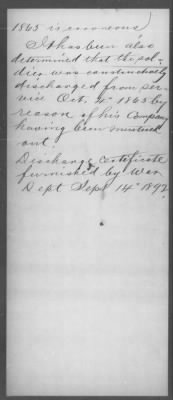 1863 is erroneous)
It has been also
determined that the sol-
dier was constructively
discharged from ser-
vice Oct. 4" 1863 by
reason of his Company
having been mustered
out.
Discharge Certificate
furnished by War
Dept Sept 14" 1892